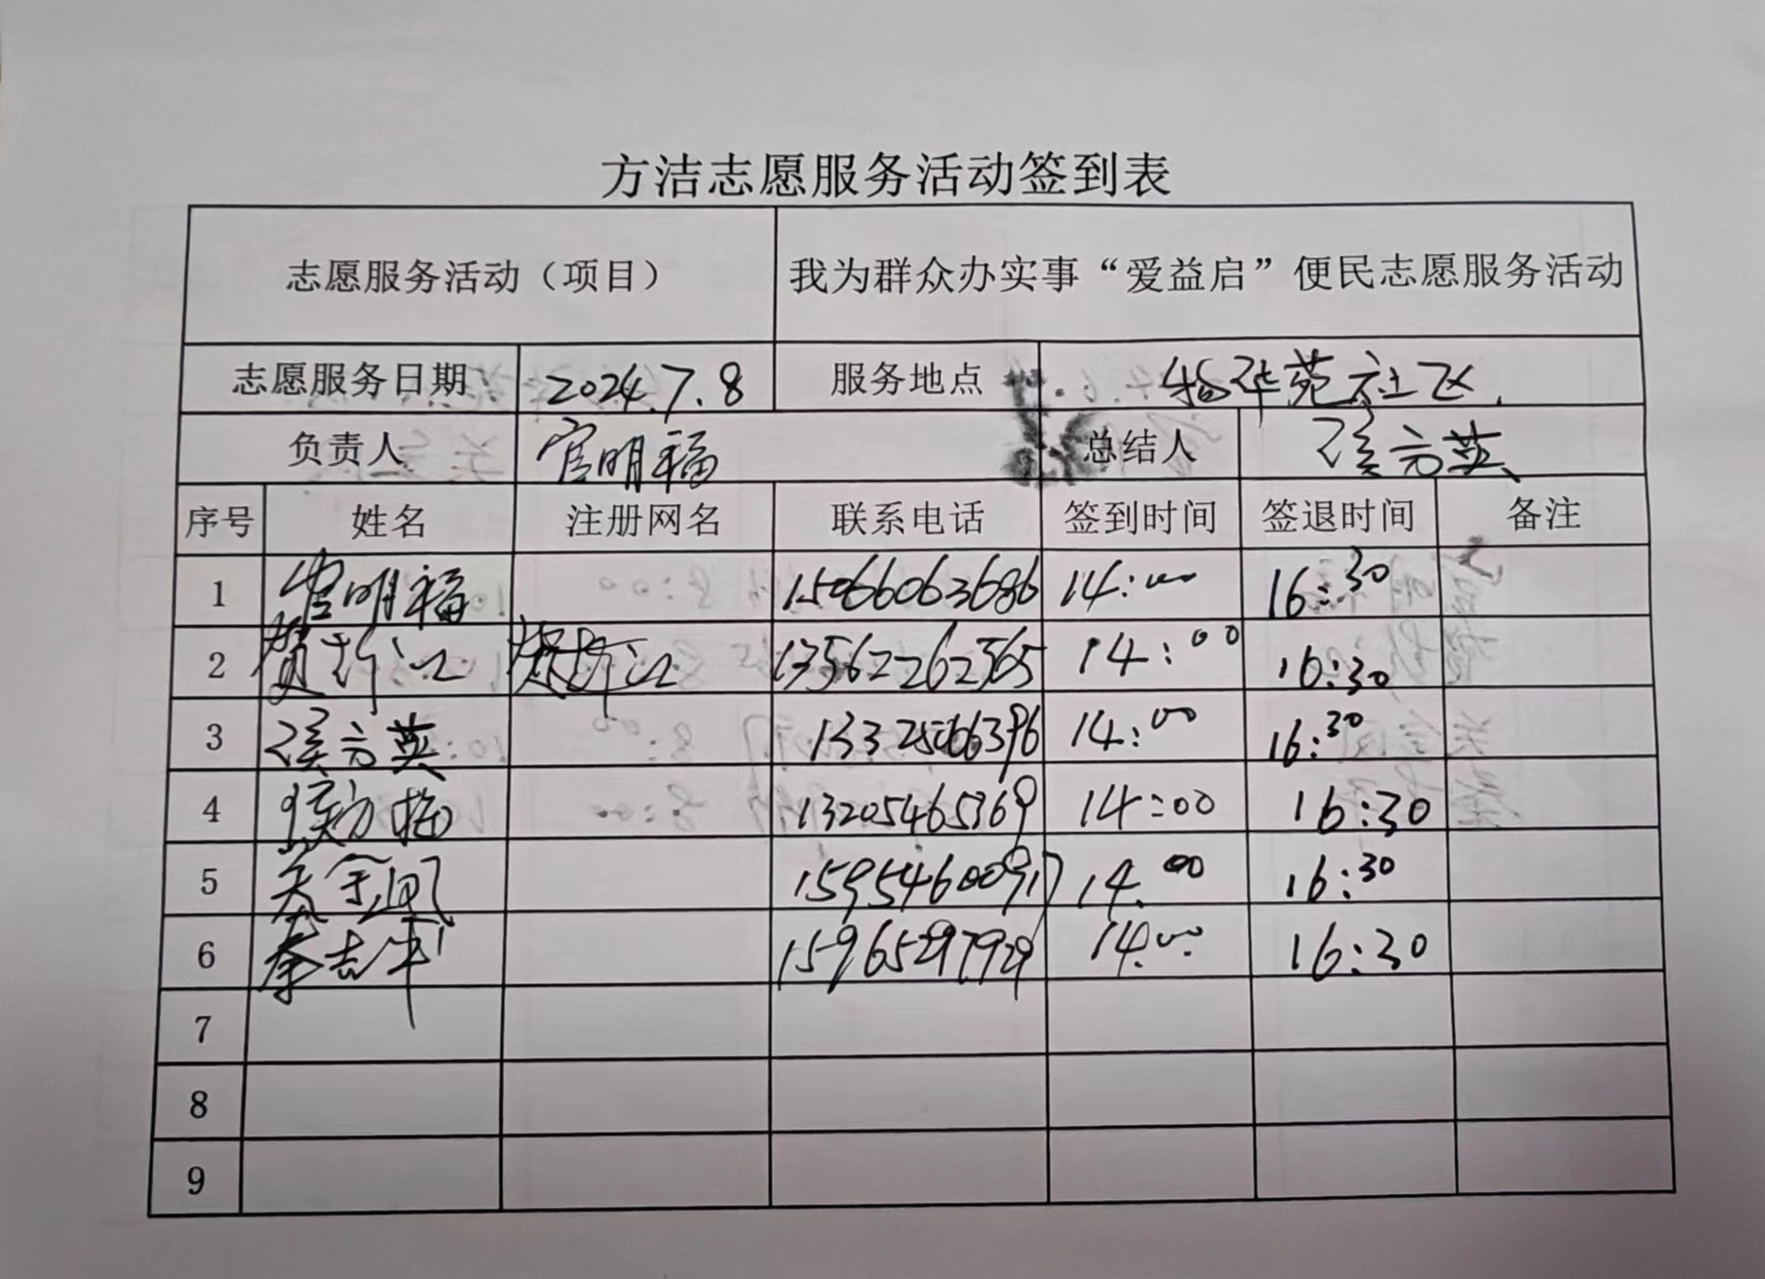 方洁志愿服务活动签到表
志愿服务活动（项目） 我为群众办实事“爱益启”便民志愿服务活动
志愿服务日期 2024.7.8 服务地点 苑社区
负责人 官明福 总结人 方英
序号 姓名 注册网名 联系电话 签到时间 签退时间 备注
1 官明福 15066063686 14:00 16:30
2 13562262365 14:00 16:30
3 方英 14:00 16:30
4 13205465369 14:00 16:30
5 15954600917 14:00 16:30
6 秦志军 15965297929 14:00 16:30
7
8
9